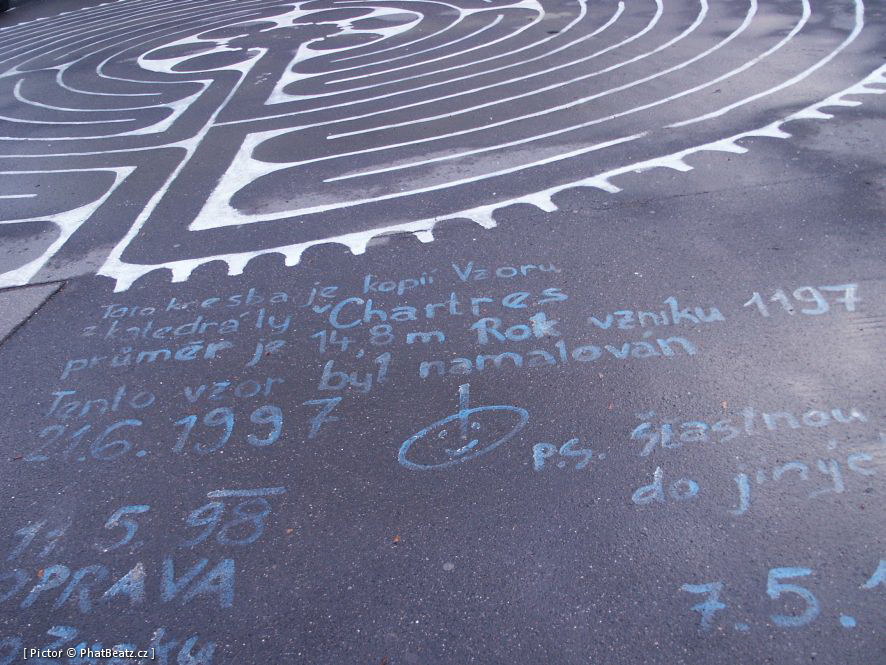 Tato kresba je kopií Vzoru
z katedrály Chartres
průměr je 14,8m Rok vzniku 1197
Tento vzor byl namalován
21.6. 1997
p.s. Šťastnou
do jinýc
11 5 98
OPRAVA
7.5.1
[ Pictor © PhatBeatz.cz ]